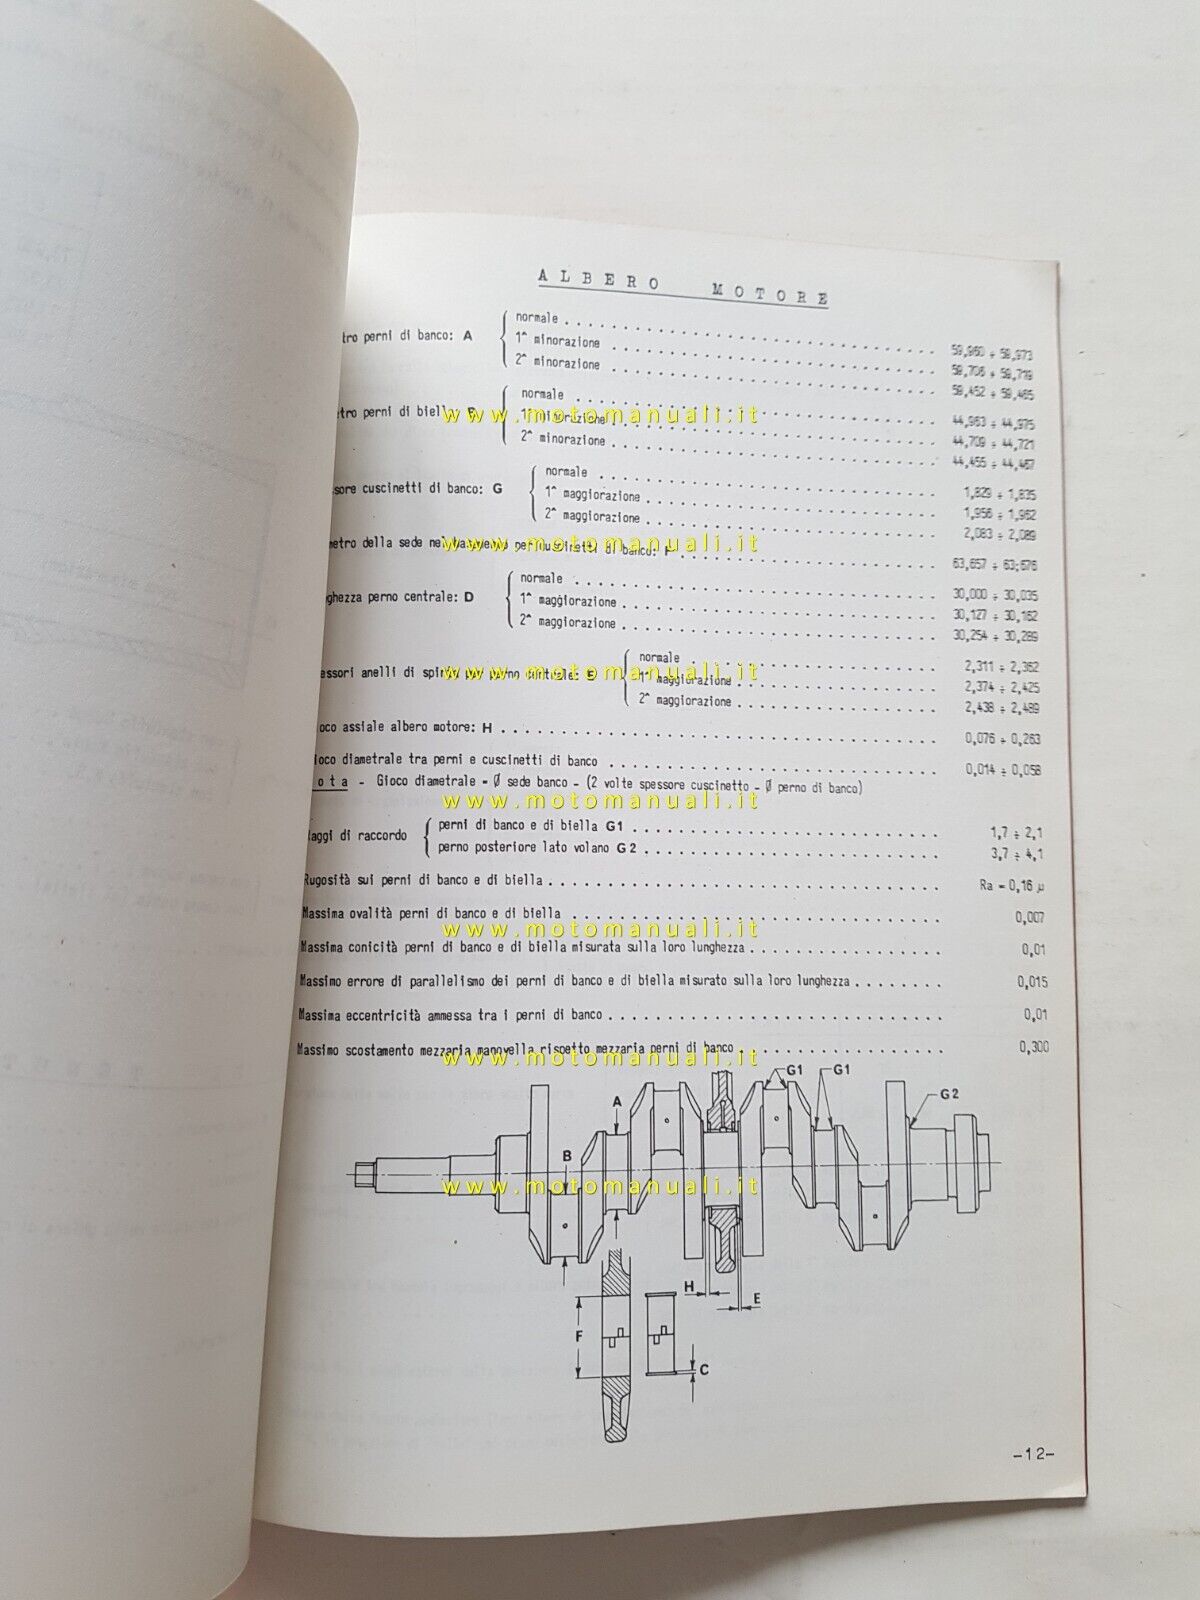 ALBERO MOTORE
tro perni di banco: A
normale 59,960 ÷ 59,973
1^ minorazione 59,706 ÷ 59,719
2^ minorazione 59,452 ÷ 59,465
tro perni di biella: B
normale 44,963 ÷ 44,975
1^ minorazione 44,709 ÷ 44,721
2^ minorazione 44,455 ÷ 44,467
www.motomanuali.it
sore cuscinetti di banco: G
normale 1,829 ÷ 1,835
1^ maggiorazione 1,956 ÷ 1,962
2^ maggiorazione 2,083 ÷ 2,089
metro della sede nel basamento per cuscinetti di banco: F 63,657 ÷ 63,676
www.motomanuali.it
ghezza perno centrale: D
normale 30,000 ÷ 30,035
1^ maggiorazione 30,127 ÷ 30,162
2^ maggiorazione 30,254 ÷ 30,289
essori anelli di spinta per perno centrale: E
normale 2,311 ÷ 2,362
1^ maggiorazione 2,374 ÷ 2,425
2^ maggiorazione 2,438 ÷ 2,489
www.motomanuali.it
ioco assiale albero motore: H 0,076 ÷ 0,263
ioco diametrale tra perni e cuscinetti di banco 0,014 ÷ 0,058
ota - Gioco diametrale = Ø sede banco - (2 volte spessore cuscinetto - Ø perno di banco)
www.motomanuali.it
aggi di raccordo
perni di banco e di biella G1 1,7 ÷ 2,1
perno posteriore lato volano G2 3,7 ÷ 4,1
Rugosità sui perni di banco e di biella Ra = 0,16 µ
Massima ovalità perni di banco e di biella 0,007
www.motomanuali.it
Massima conicità perni di banco e di biella misurata sulla loro lunghezza 0,01
Massimo errore di parallelismo dei perni di banco e di biella misurato sulla loro lunghezza 0,015
Massima eccentricità ammessa tra i perni di banco 0,01
Massimo scostamento mezzaria manovella rispetto mezzaria perni di banco 0,300
www.motomanuali.it
G1 G1
G2
A
B
www.motomanuali.it
H
E
F
C
-12-